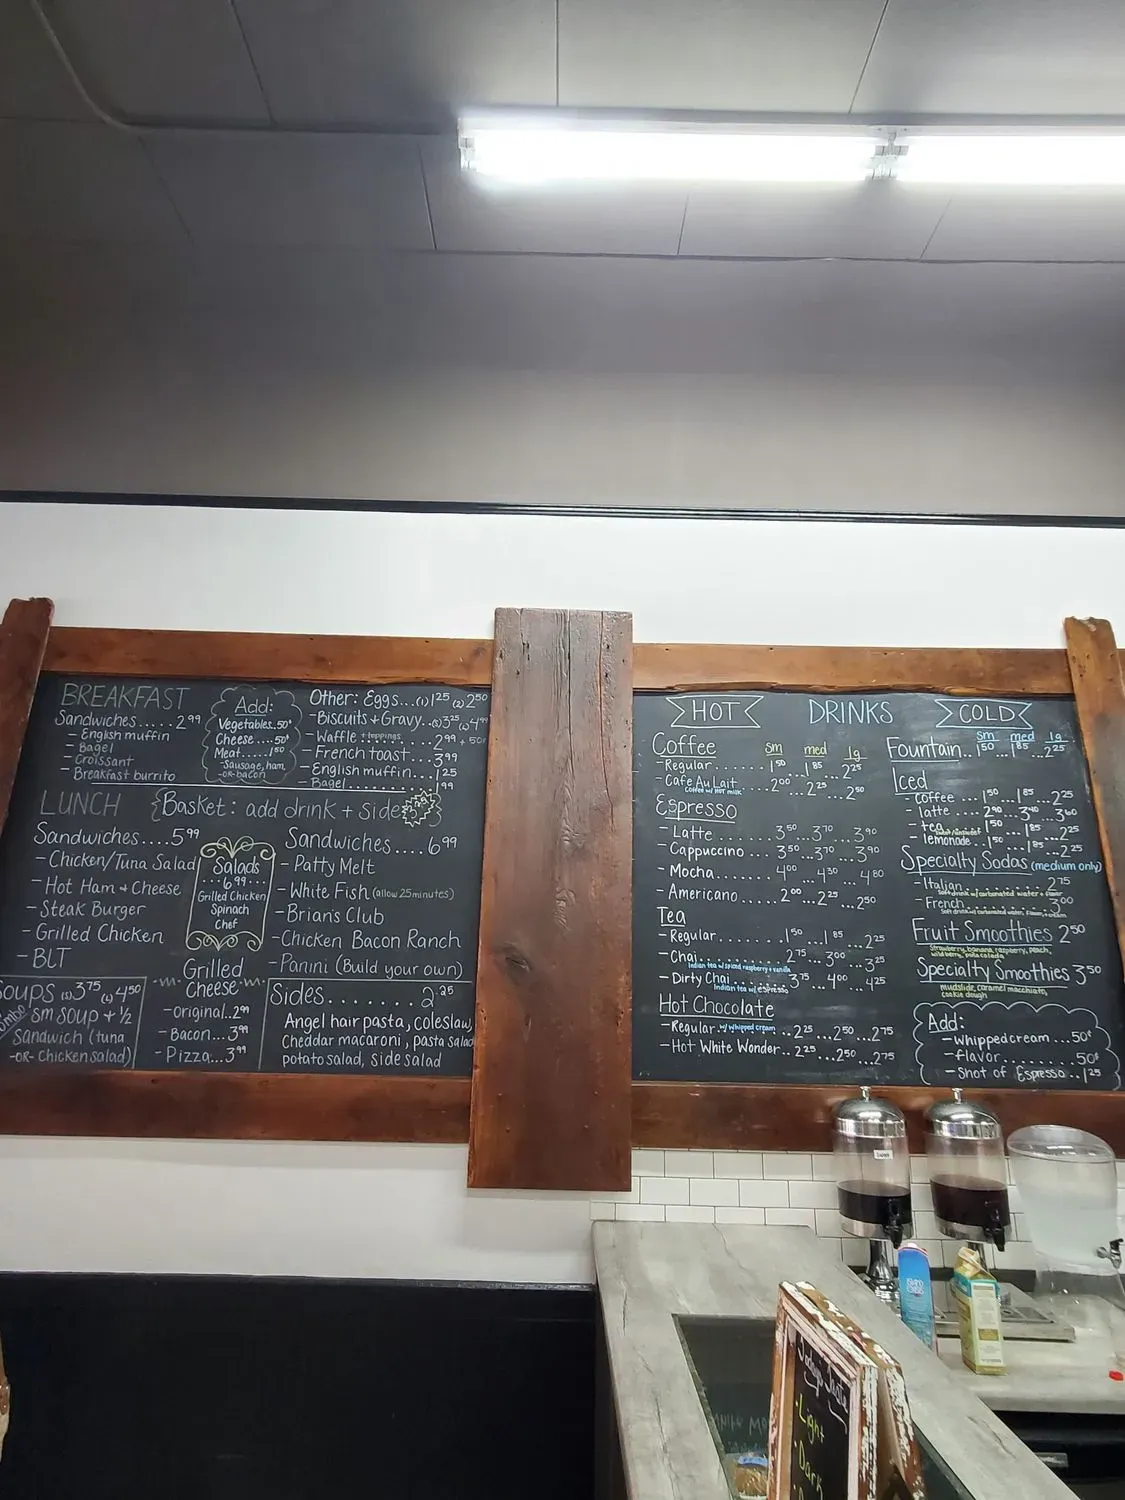 BREAKFAST
Sandwiches.....2.99
- English muffin
- Bagel
- Croissant
- Breakfast burrito
Add:
Vegetables..50¢
Cheese....50¢
Meat....1.50
Sausage, ham,
-OR- bacon
Other: Eggs...(1)1.25 (2)2.50
- Biscuits + Gravy..(s)3.25 (L)4.99
- Waffle + toppings ........2.99 + 50¢
- French toast....3.99
- English muffin....1.25
- Bagel..........1.99
LUNCH
Basket: add drink + side
Sandwiches....5.99
- Chicken/Tuna Salad
- Hot Ham + Cheese
- Steak Burger
- Grilled Chicken
- BLT
Salads
...6.99...
Grilled Chicken
Spinach
Chef
Sandwiches.....6.99
- Patty Melt
- White Fish (allow 25 minutes)
- Brian's Club
- Chicken Bacon Ranch
- Panini (Build your own)
Soups (s)3.75 (L)4.50
sm soup + 1/2
Sandwich (tuna
-OR- Chicken salad)
Grilled
Cheese
- Original..2.99
- Bacon...3.99
- Pizza...3.99
Sides........2.25
Angel hair pasta, coleslaw,
Cheddar macaroni, pasta salad
potato salad, side salad
HOT DRINKS COLD
Coffee sm med lg
- Regular.......1.50...1.85...2.25
- Cafe Au Lait....2.00...2.25...2.50
Coffee w/ Hot milk
Espresso
- Latte.........3.50...3.70...3.90
- Cappuccino....3.50...3.70...3.90
- Mocha.........4.00...4.30...4.80
- Americano.....2.00...2.25...2.50
Tea
- Regular.......1.50...1.85...2.25
- Chai..........2.75...3.00...3.25
Indian tea w/ spiced raspberry + vanilla
- Dirty Chai....3.75...4.00...4.25
Indian tea w/ espresso
Hot Chocolate
- Regular w/ whipped cream ...2.25...2.50...2.75
- Hot White Wonder..2.25...2.50...2.75
sm med lg
Fountain...1.50...1.85...2.25
Iced
- Coffee...1.50...1.85...2.25
- latte....2.90...3.40...3.60
- tea 1.50...1.85...2.25
- lemonade..1.50...1.85...2.25
Specialty Sodas (medium only)
- Italian..........2.75
Soft drink w/ carbonated water + flavor
- French..........3.00
Soft drink w/ carbonated water, flavor, + cream
Fruit Smoothies 2.50
Strawberry, banana, raspberry, peach,
wild berry, pina colada
Specialty Smoothies 3.50
mudslide, caramel macchiato,
cookie dough
Add:
- Whipped cream...50¢
- flavor..........50¢
- Shot of Espresso..1.25
Today's Taste
Light
Dark